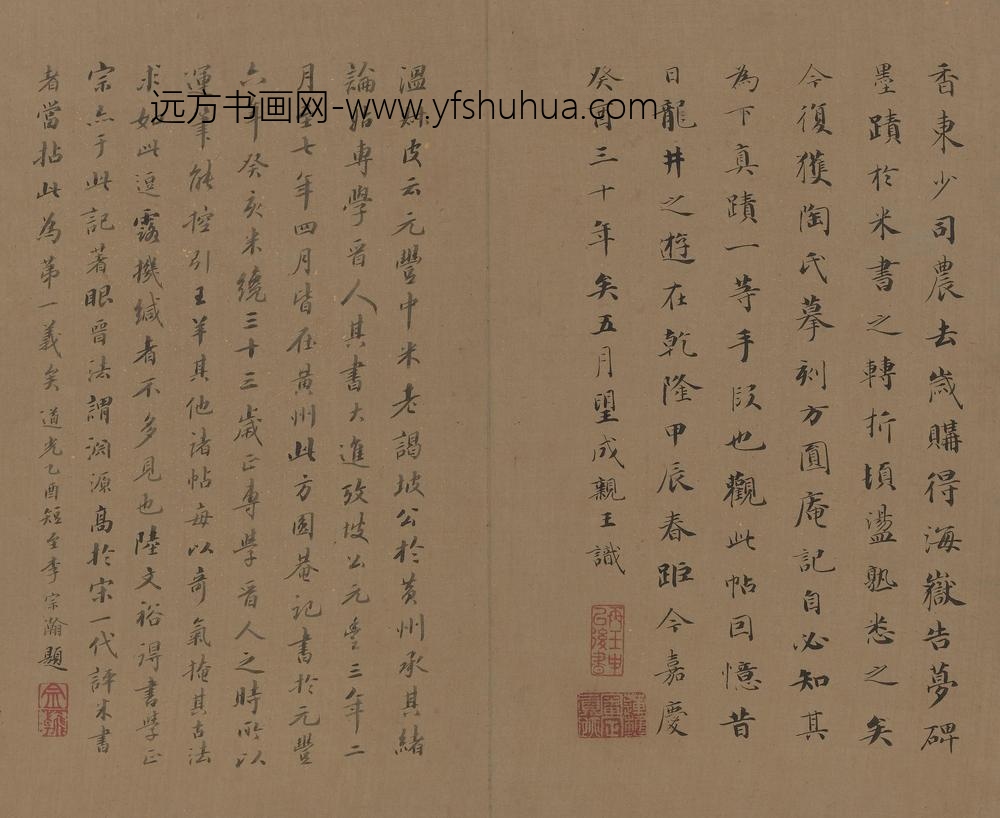 香東少司農去歲購得海嶽告夢碑
墨蹟於米書之轉折頓盪熟悉之矣
今復獲陶氏摹刻方圓庵記自必知其
為下真蹟一等手段也觀此帖回憶昔
日龍井之遊在乾隆甲辰春距今嘉慶
癸酉三十年矣五月望成親王識
溫 皮云元豐中米老謁坡公於黃州承其緒
論始專學晉人其書大進攷坡公元豐三年二
月至七年四月皆在黃州此方圓菴記書於元豐
六年癸亥米纔三十三歲正專學晉人之時所以
運筆能控引王羊其他諸帖每以奇氣掩其古法
求如此逗露機緘者不多見也陸文裕得書學正
宗亦于此記著眼晉法謂淵源高於宋一代評米書
者當拈此為第一義矣道光乙酉短至李宗瀚題
远方书画网-www.yfshuhua.com